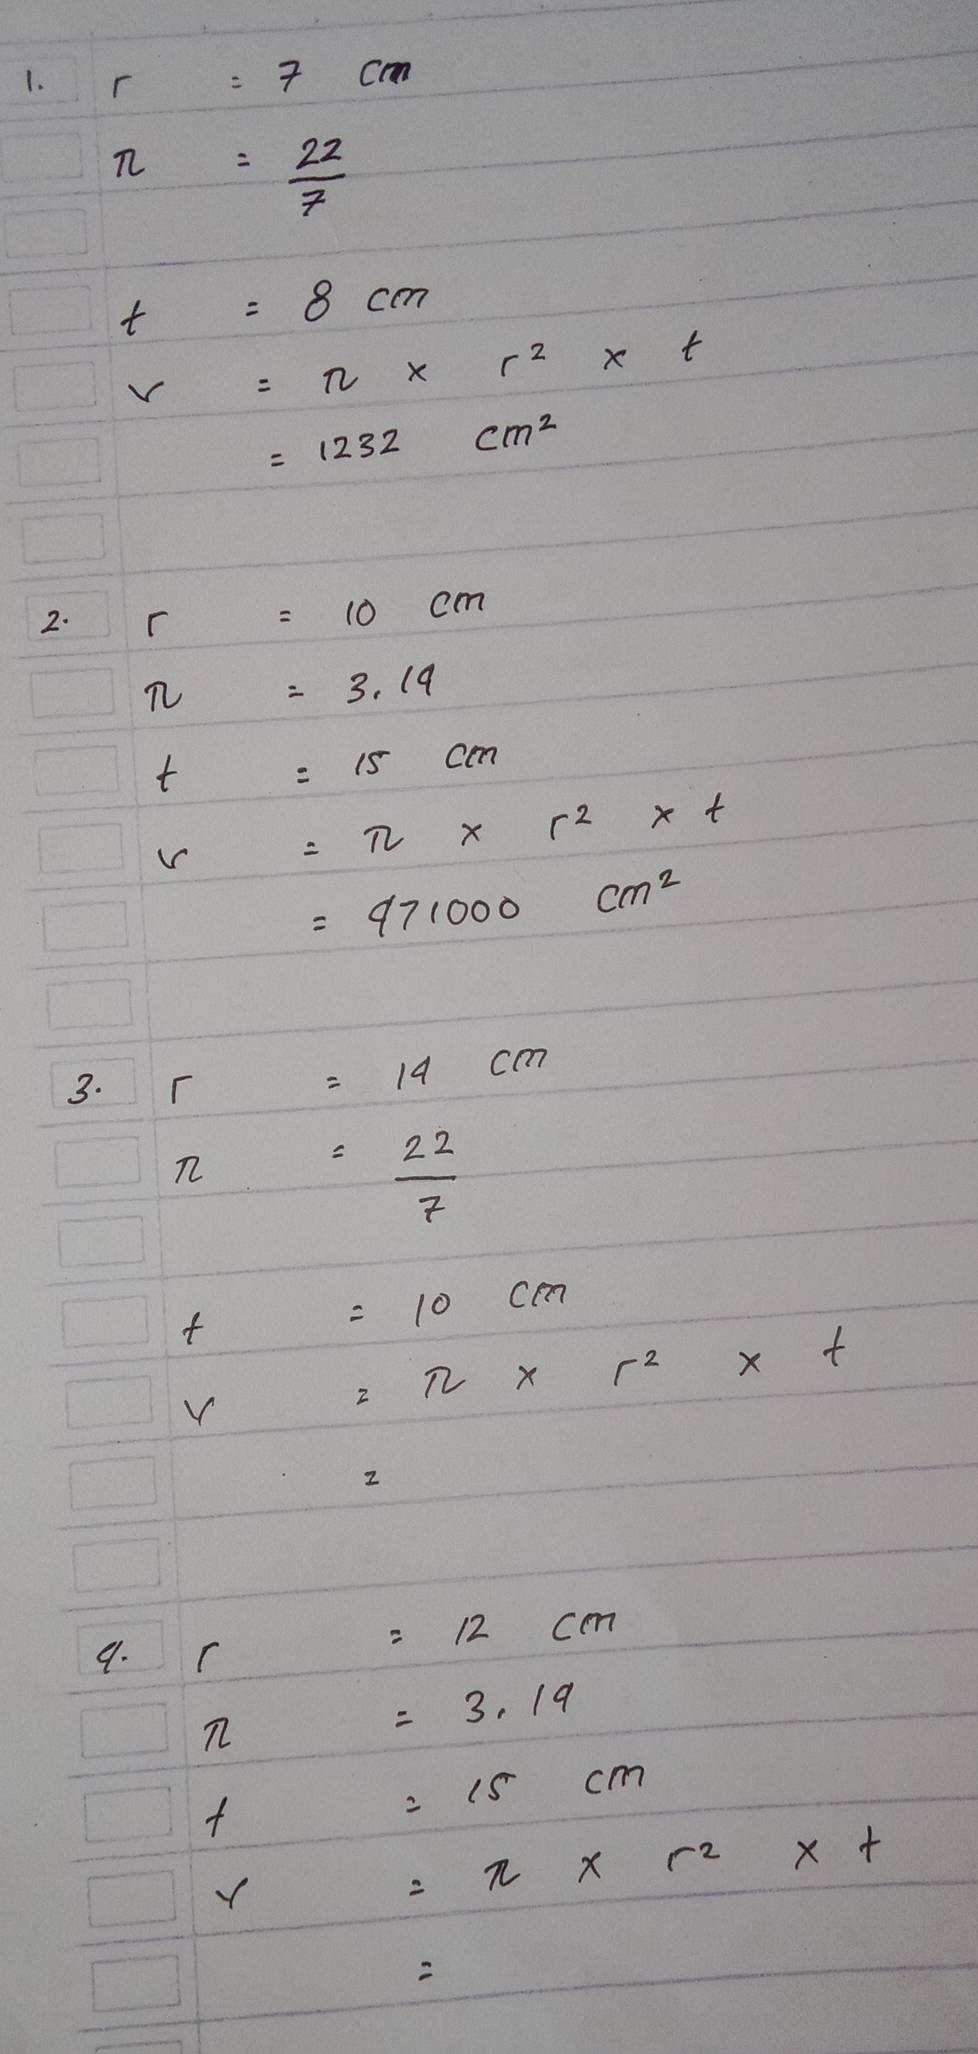 1. r = 7 cm
π = 22/7
t = 8 cm
v = π x r² x t
= 1232 cm²
2. r = 10 cm
π = 3,14
t = 15 cm
v = π x r² x t
= 471000 cm²
3. r = 14 cm
π = 22/7
t = 10 cm
v = π x r² x t
=
4. r = 12 cm
π = 3,14
t = 15 cm
v = π x r² x t
=